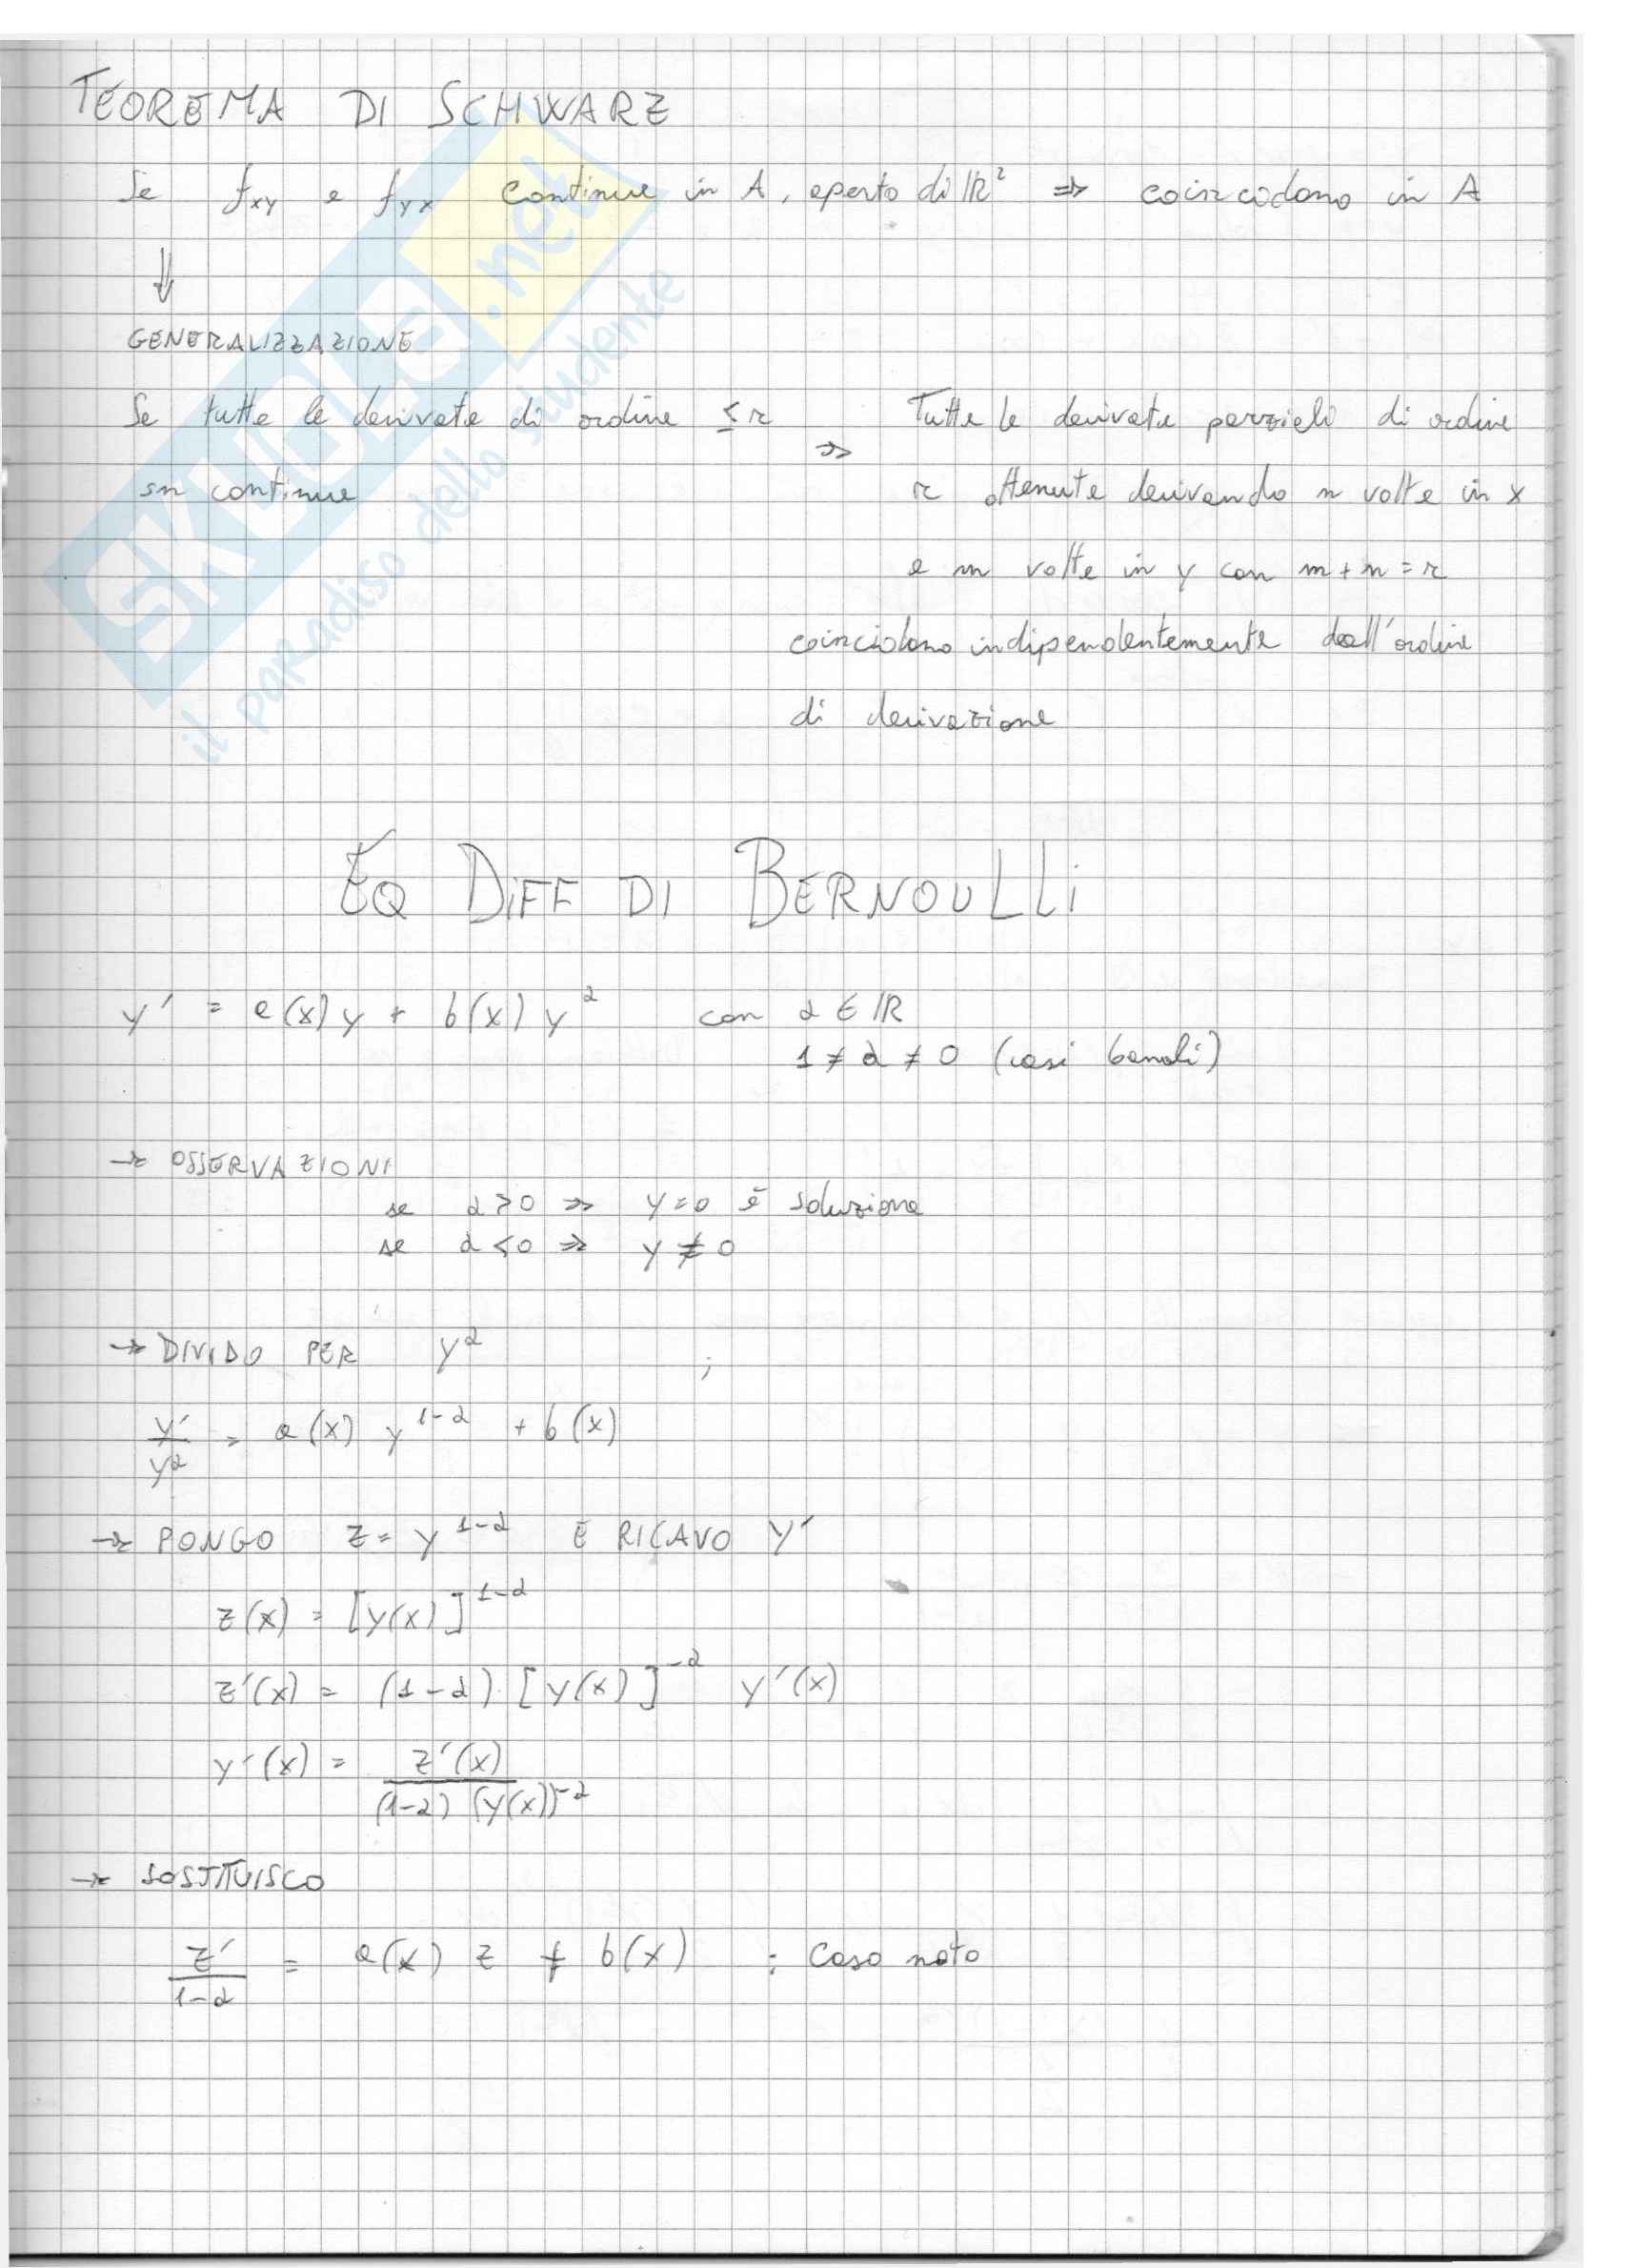 TEOREMA DI SCHWARZ
Se fxy e fyx continue in A, aperto di ℝ² ⇒ coincidono in A
⇓
GENERALIZZAZIONE
Se tutte le derivate di ordine ≤ r
sn continue
⇒
Tutte le derivate parziali di ordine
r ottenute derivando n volte in x
e m volte in y con m+n=r
coincidono indipendentemente dall'ordine
di derivazione
EQ DIFF DI BERNOULLI
y' = a(x) y + b(x) y^α con α ∈ ℝ
1 ≠ α ≠ 0 (casi banali)
→ OSSERVAZIONI
se α > 0 ⇒ y=0 è soluzione
se α < 0 ⇒ y ≠ 0
→ DIVIDO PER y^α ;
y'/y^α = a(x) y^(1-α) + b(x)
→ PONGO z = y^(1-α) E RICAVO y'
z(x) = [y(x)]^(1-α)
z'(x) = (1-α) · [y(x)]^(-α) y'(x)
y'(x) = z'(x) / (1-α) (y(x))^(-α)
→ SOSTITUISCO
z'/(1-α) = a(x) z + b(x) : caso noto
SKUOLA.net
il paradiso dello studente